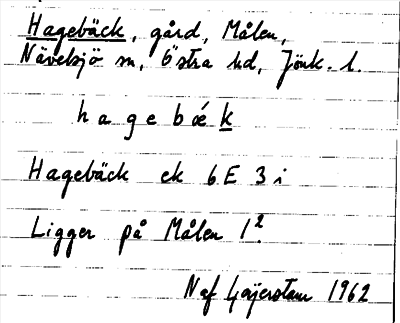 Hagebäck, gård, Målen,
Nävelsjö sn, Östra hd, Jönk. l.
h a g e b ǽ k
Hagebäck ek 6E 3 i
Ligger på Målen 1².
Naf Gaijerstam 1962